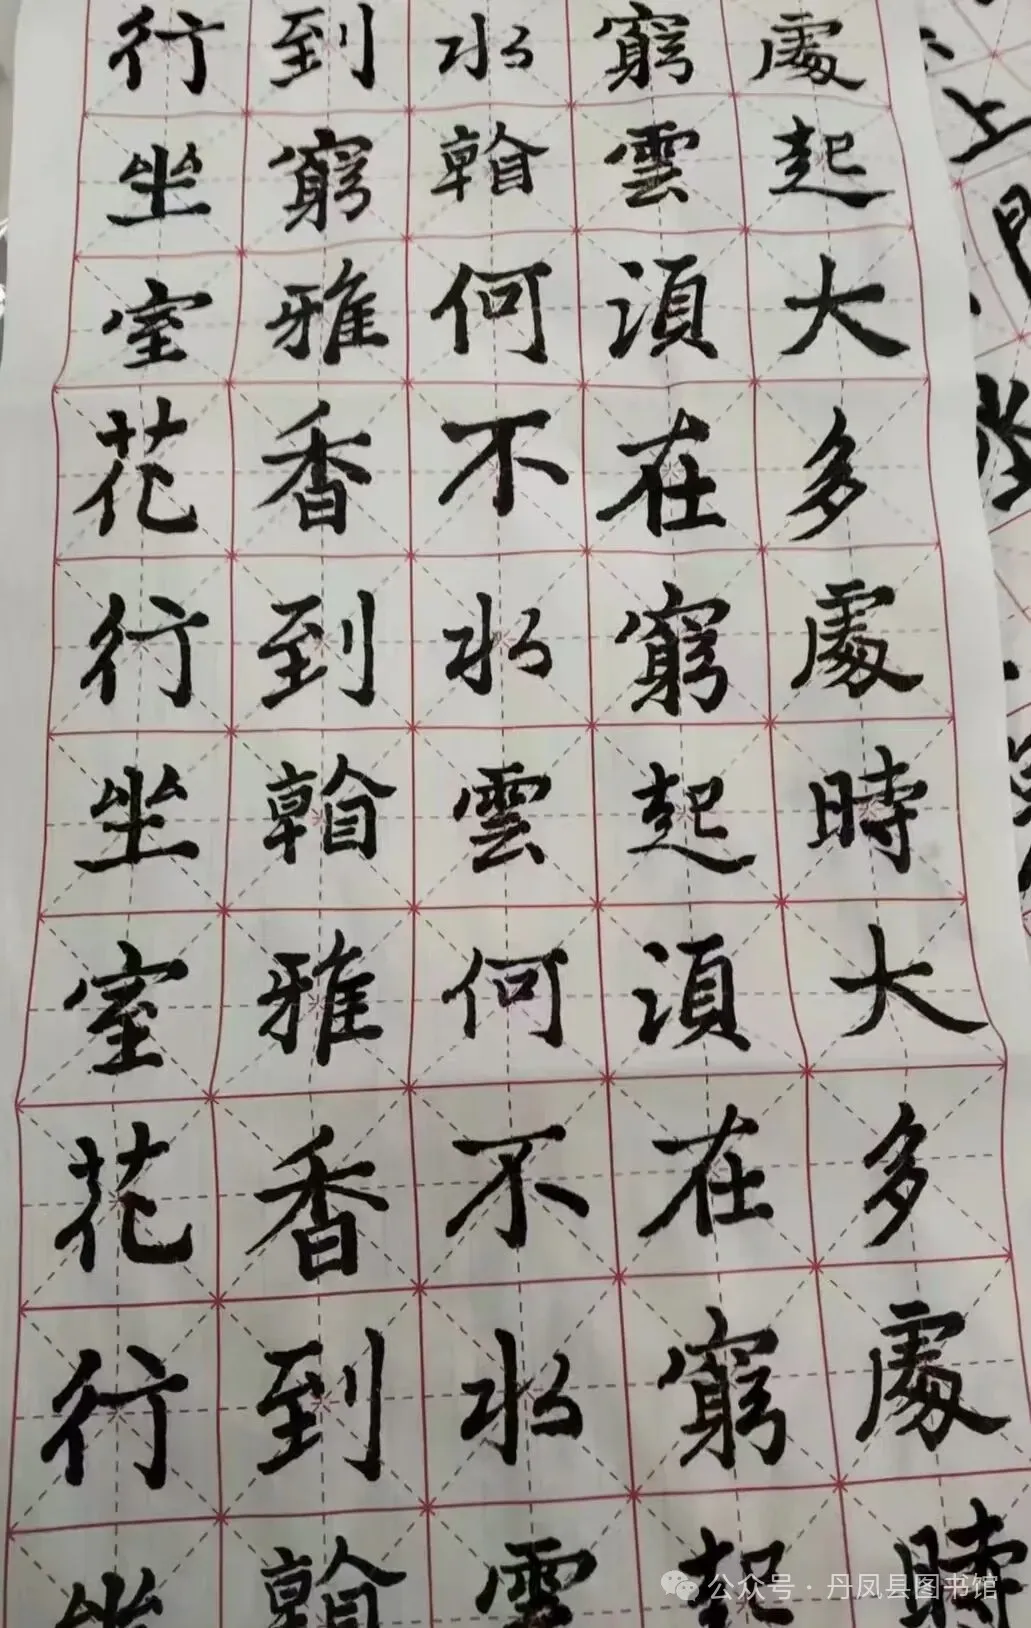 行到水窮處
坐窮雲起
室雅何湏大
花香不在多
行到水窮處
坐雲起時
室雅何湏大
花香不在多
行到水窮處
坐雲起時
上
公众号 · 丹凤县图书馆